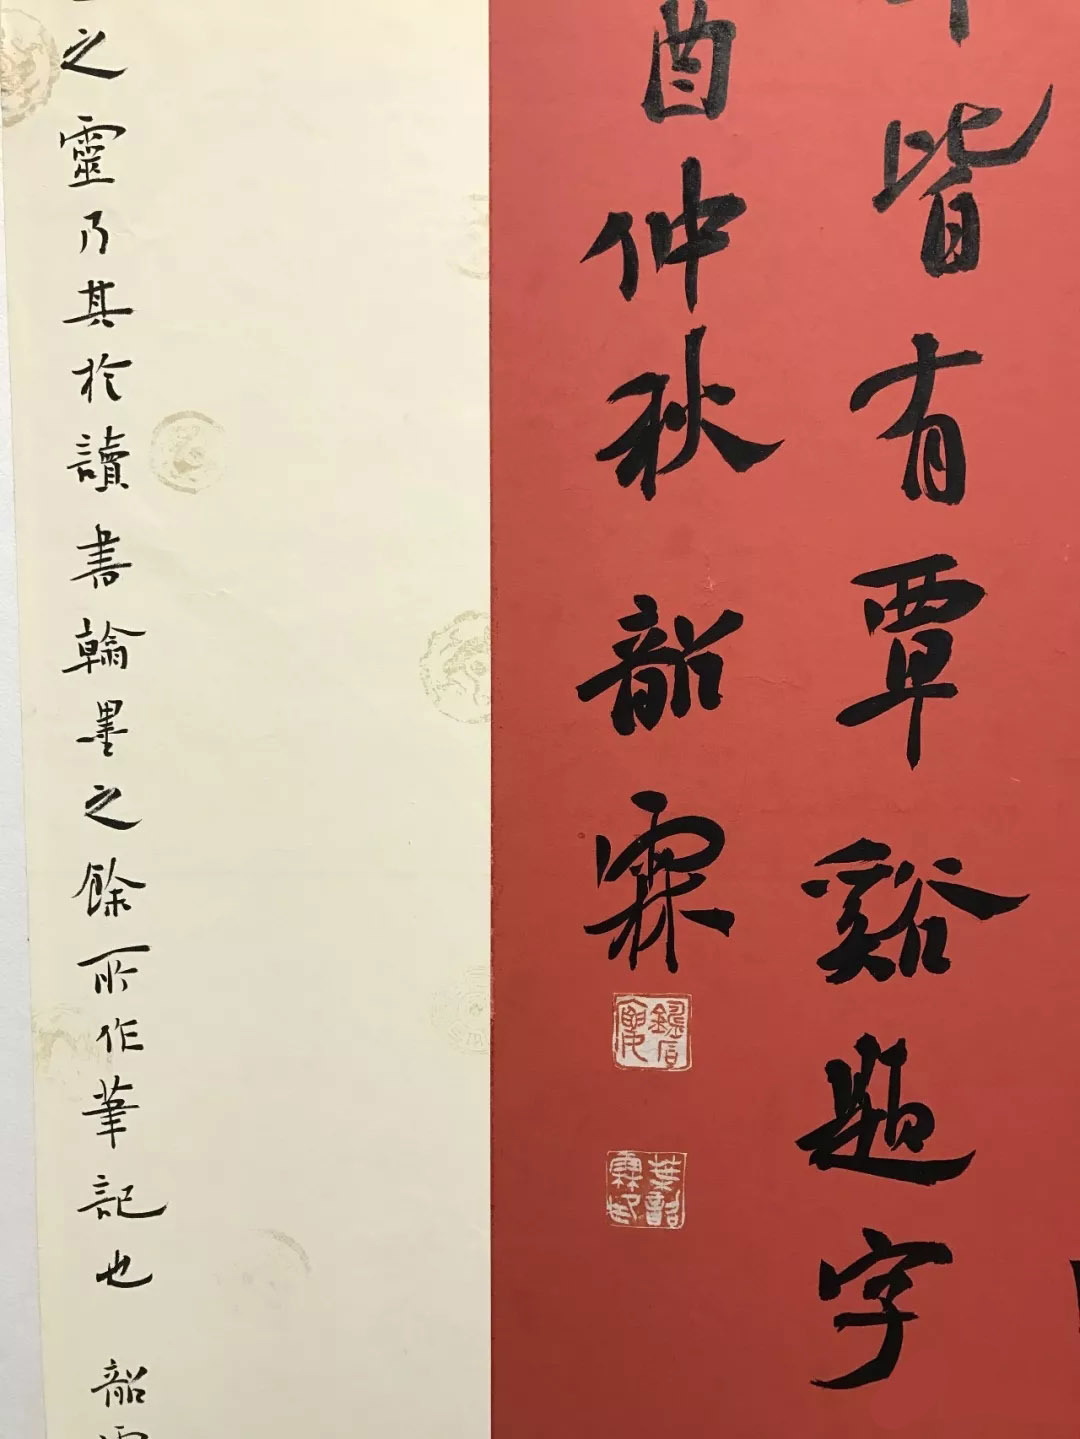 皆有覃谿題字
酉仲秋韶霖
葉韶霖印
之靈乃其於讀書翰墨之餘所作筆記也 韶